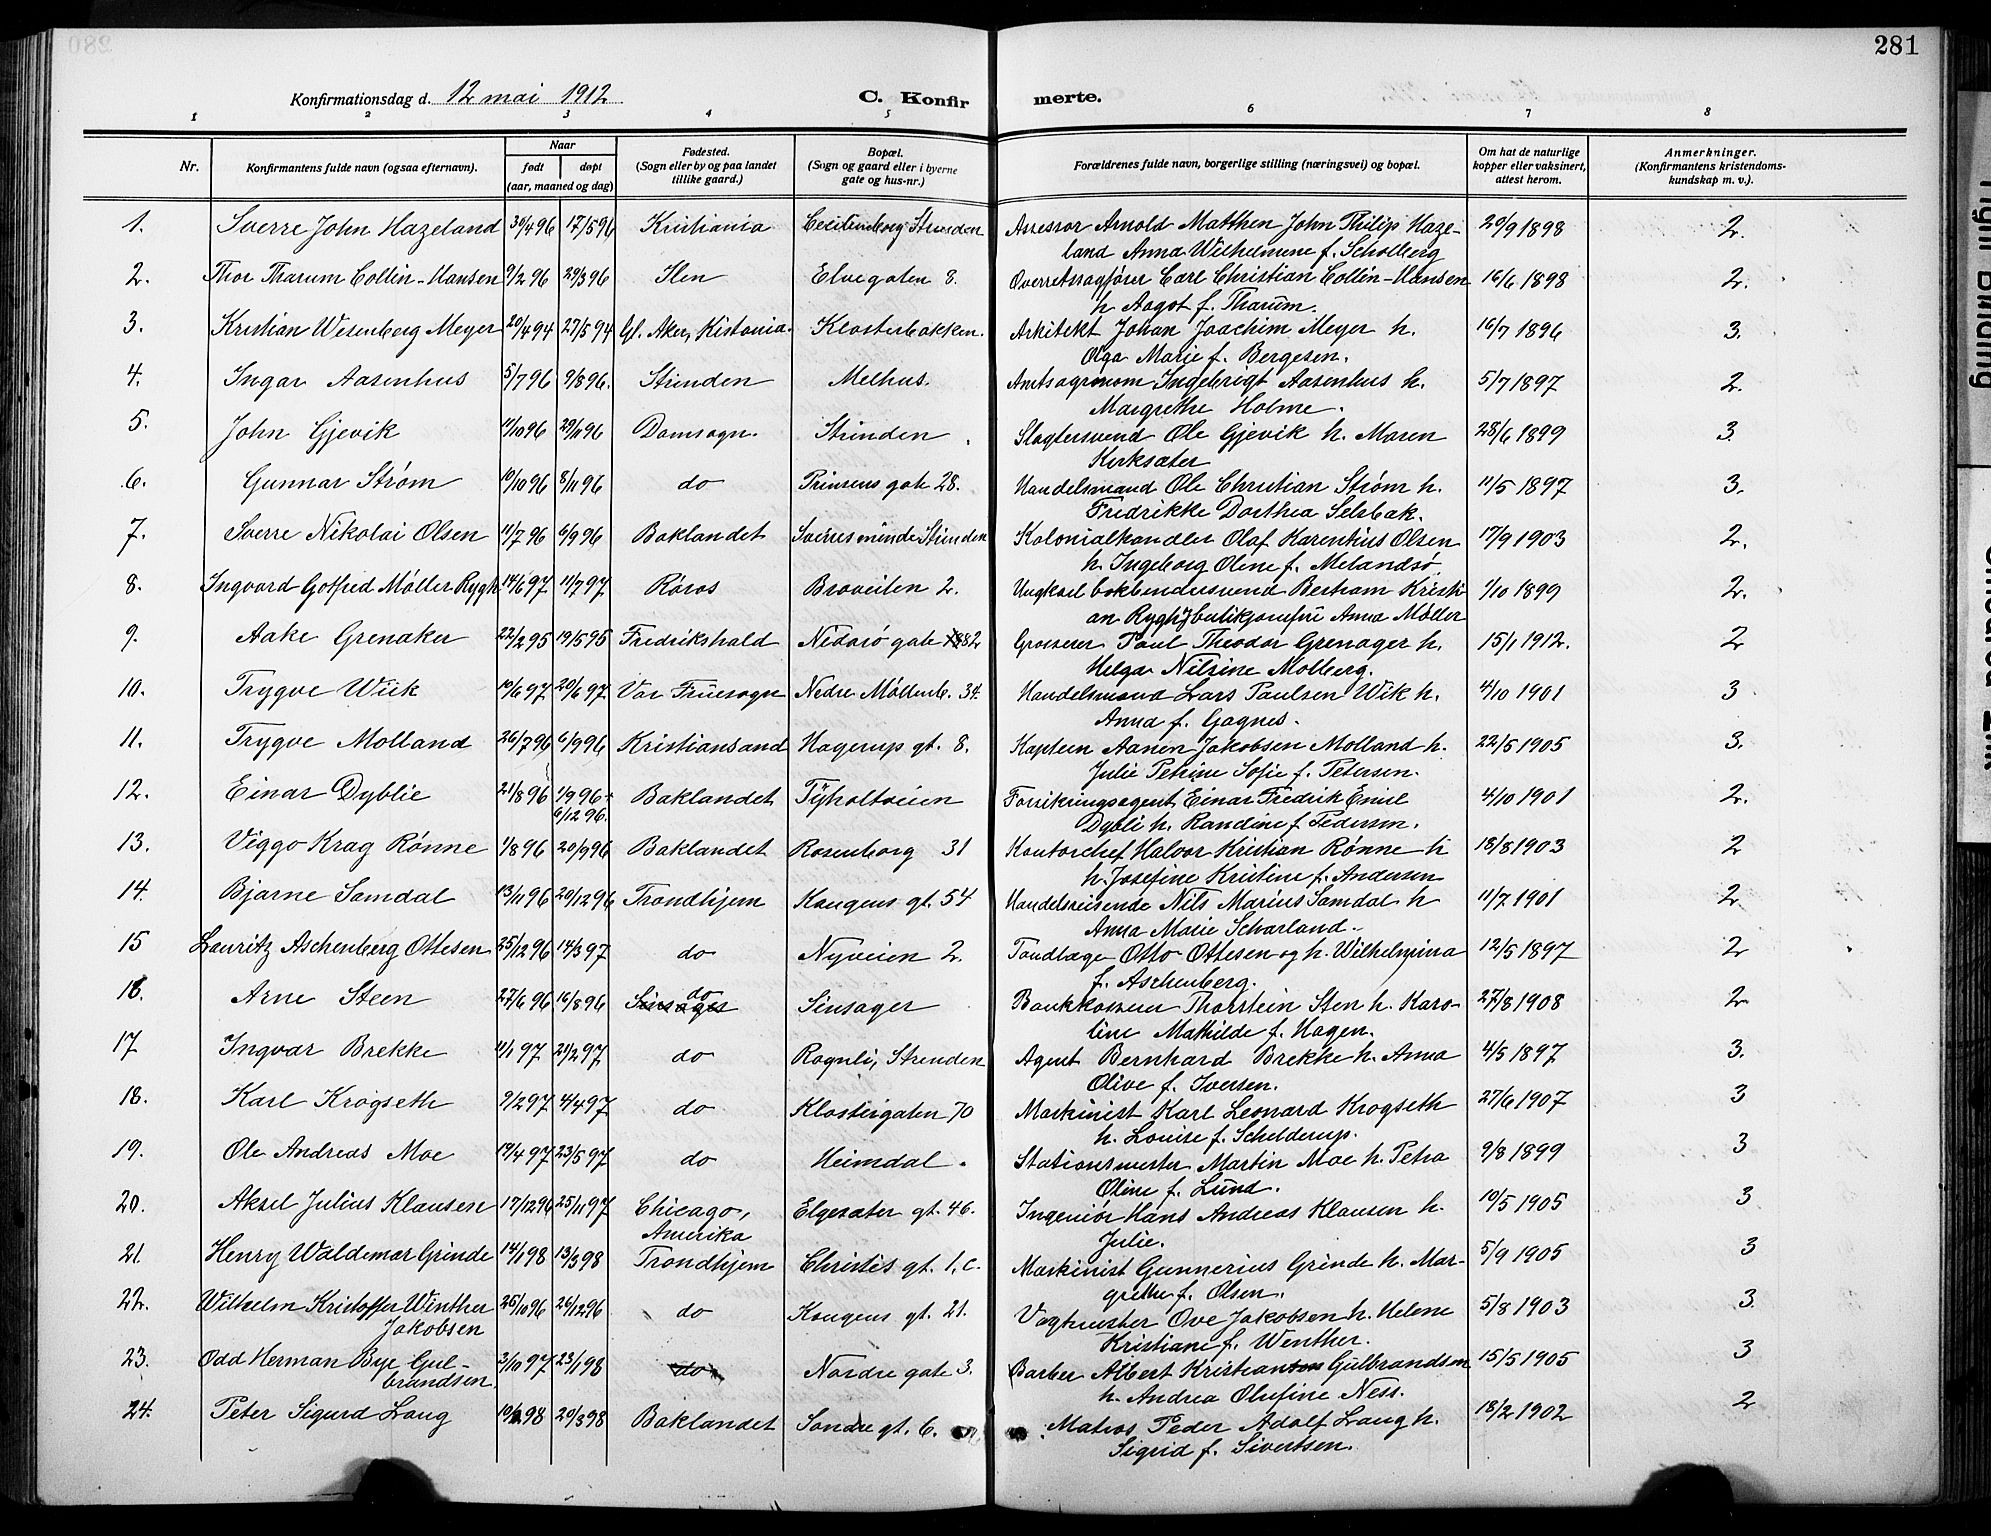 281
Konfirmationsdag d. 12 mai 1912
C. Konfirmerte.
1 2 3 4 5 6 7 8
Nr. Konfirmantens fulde navn (ogsaa efternavn). Naar født døpt (aar, maaned og dag) Fødested. (Sogn eller by og paa landet tillike gaard.) Bopæl. (Sogn og gaard eller i byerne gate og hus-nr.) Forældrenes fulde navn, borgerlige stilling (næringsvei) og bopæl. Om hat de naturlige kopper eller vaksinert, attest herom. Anmerkninger. (Konfirmantens kristendomskundskap m. v.).
1. Sverre John Hazeland 30/4 96 17/5 96 Kristiania Cecilienborg Strinden Assessor Arnold Matthen John Philip Haze- 20/9 1898 2.
land Anna Wilhelmine f. Scholberg
2. Thor Tharum Collin-Hansen 9/2 96 29/3 96 Ilen Elvegaten 8. Overretssagfører Carl Christian Collin-Hansen 16/6 1898 2.
h. Aagot f. Tharum.
3. Kristian Wesenberg Meyer 20/4 94 27/5 94 Gl. Aker, Kistania. Klosterbakken. Arkitekt Johan Joachim Meyer h. 16/7 1896 3.
Olga Marie f. Bergesen.
4. Ingar Aasenhus 5/7 96 9/8 96. Strinden Melhus. Amtsagronom Ingebrigt Aasenhus h. 5/7 1897 2.
Margrethe Holme.
5. John Gjevik 11/10 96 29/11 96 Domsogn. Strinden Slagtersvend Ole Gjevik h. Maren 28/6 1899 3.
Kirksæter
6. Gunnar Strøm 10/10 96 8/11 96 do Prinsens gate 28. Handelsmand Ole Christian Strøm h. 11/5 1897 3.
Fredrikke Dorthea Selsbak.
7. Sverre Nikolai Olsen 11/7 96 6/9 96 Baklandet Sverresminde Strinden Kolonialhandler Olaf Karentius Olsen 17/9 1903 2.
h. Ingeborg Oline f. Melandsø.
8. Ingvard Gotfred Møller Rygh 14/6 97 11/7 97 Røros Broveiten 2. Ungkarl bokbindersvend Bertram Kristi- 1/10 1899 2.
an Rygh, butikjomfru Anna Møller
9. Aake Grenaker 22/2 95 19/5 95 Fredrikshald Nidarø gate 82 Grosserer Paul Theodor Grenager h. 15/1 1912. 2
Helga Nilsine Molberg.
10. Trygve Wiik 10/6 97 20/6 97 Vor Fruesogn Nedre Møllenb. 34. Handelsmand Lars Paulsen Wik h. 4/10 1901 3
Anna f. Gagnes.
11. Trygve Molland 26/7 96 6/9 96 Kristiansand Hagerup gt. 8. Kaptein Aanen Jakobsen Molland h. 22/5 1905 3.
Julie Petrine Sofie f. Petersen.
12. Einar Dyblie 21/8 96 1/9 96 + 6/12 96. Baklandet Tyholtveien Forsikringsagent Einar Fredrik Emil 4/10 1901 2.
Dybli h. Randine f. Pedersen.
13. Viggo Krag Rønne 1/8 96 20/9 96 Baklandet Rosenborg 31 Kontorchef Halvor Kristian Rønne h 18/8 1903 2
h. Josefine Kristine f. Andersen
14. Bjarne Samdal 13/11 96 20/12 96 Trondhjem Kongens gt. 54 Handelsreisende Nils Marius Samdal h 11/7 1901 2
Anna Marie Scharland.
15 Lauritz Aschenberg Ottesen 25/12 96 14/3 97 do Nyveien 2. Tandlæge Otto Ottesen og h. Wilhelmina 12/5 1897 2
f. Aschenberg.
16. Arne Steen 27/6 96 16/8 96 do Sinsager Bankkasserer Thorstein Sten h. Karo- 27/8 1908 2
line Mathilde f. Hagen.
17 Ingvar Brekke 11/1 97 21/2 97 do Rognli, Strinden Agent Bernhard Brekke h. Anna 4/5 1897 3.
Olive f. Iversen.
18. Karl Krogseth 9/2 97 4/4 97 do Klostergaten 70 Maskinist Karl Leonard Krogseth 27/6 1907 3
h. Louise f. Schelderup.
19. Ole Andreas Moe 19/4 97 23/5 97 do Heimdal. Stationsmester Martin Moe h. Petra 9/8 1899 3
Oline f. Lund.
20. Aksel Julius Klausen 17/12 96 25/11 97 Chicago, Amerika Elgesæter gt. 46. Ingeniør Hans Andreas Klausen h. 10/5 1905 3
Julie.
21. Henry Waldemar Grinde 14/1 98 13/3 98 Trondhjem Christies gt. 1, c. Maskinist Gunnerius Grinde h. Mar- 5/9 1905 3
grethe f. Olsen.
22. Wilhelm Kristoffer Winther Jakobsen 25/10 96 26/12 96 do Kongens gt. 21. Vagtmester Ove Jakobsen h. Helene 5/8 1903 3.
Kristiane f. Wenther.
23. Odd Herman Bye Gul- brandsen. 3/10 97 23/1 98 do Nordre gate 3. Barber Albert Kristian Gulbrandsen 15/5 1905 3
h. Andrea Olufine Ness.
24. Peter Sigurd Laug 10/1 98 20/3 98 Baklandet Søndre gt. 6. Matros Peder Adolf Laug h. 18/2 1902 2
Sigrid f. Sivertsen.